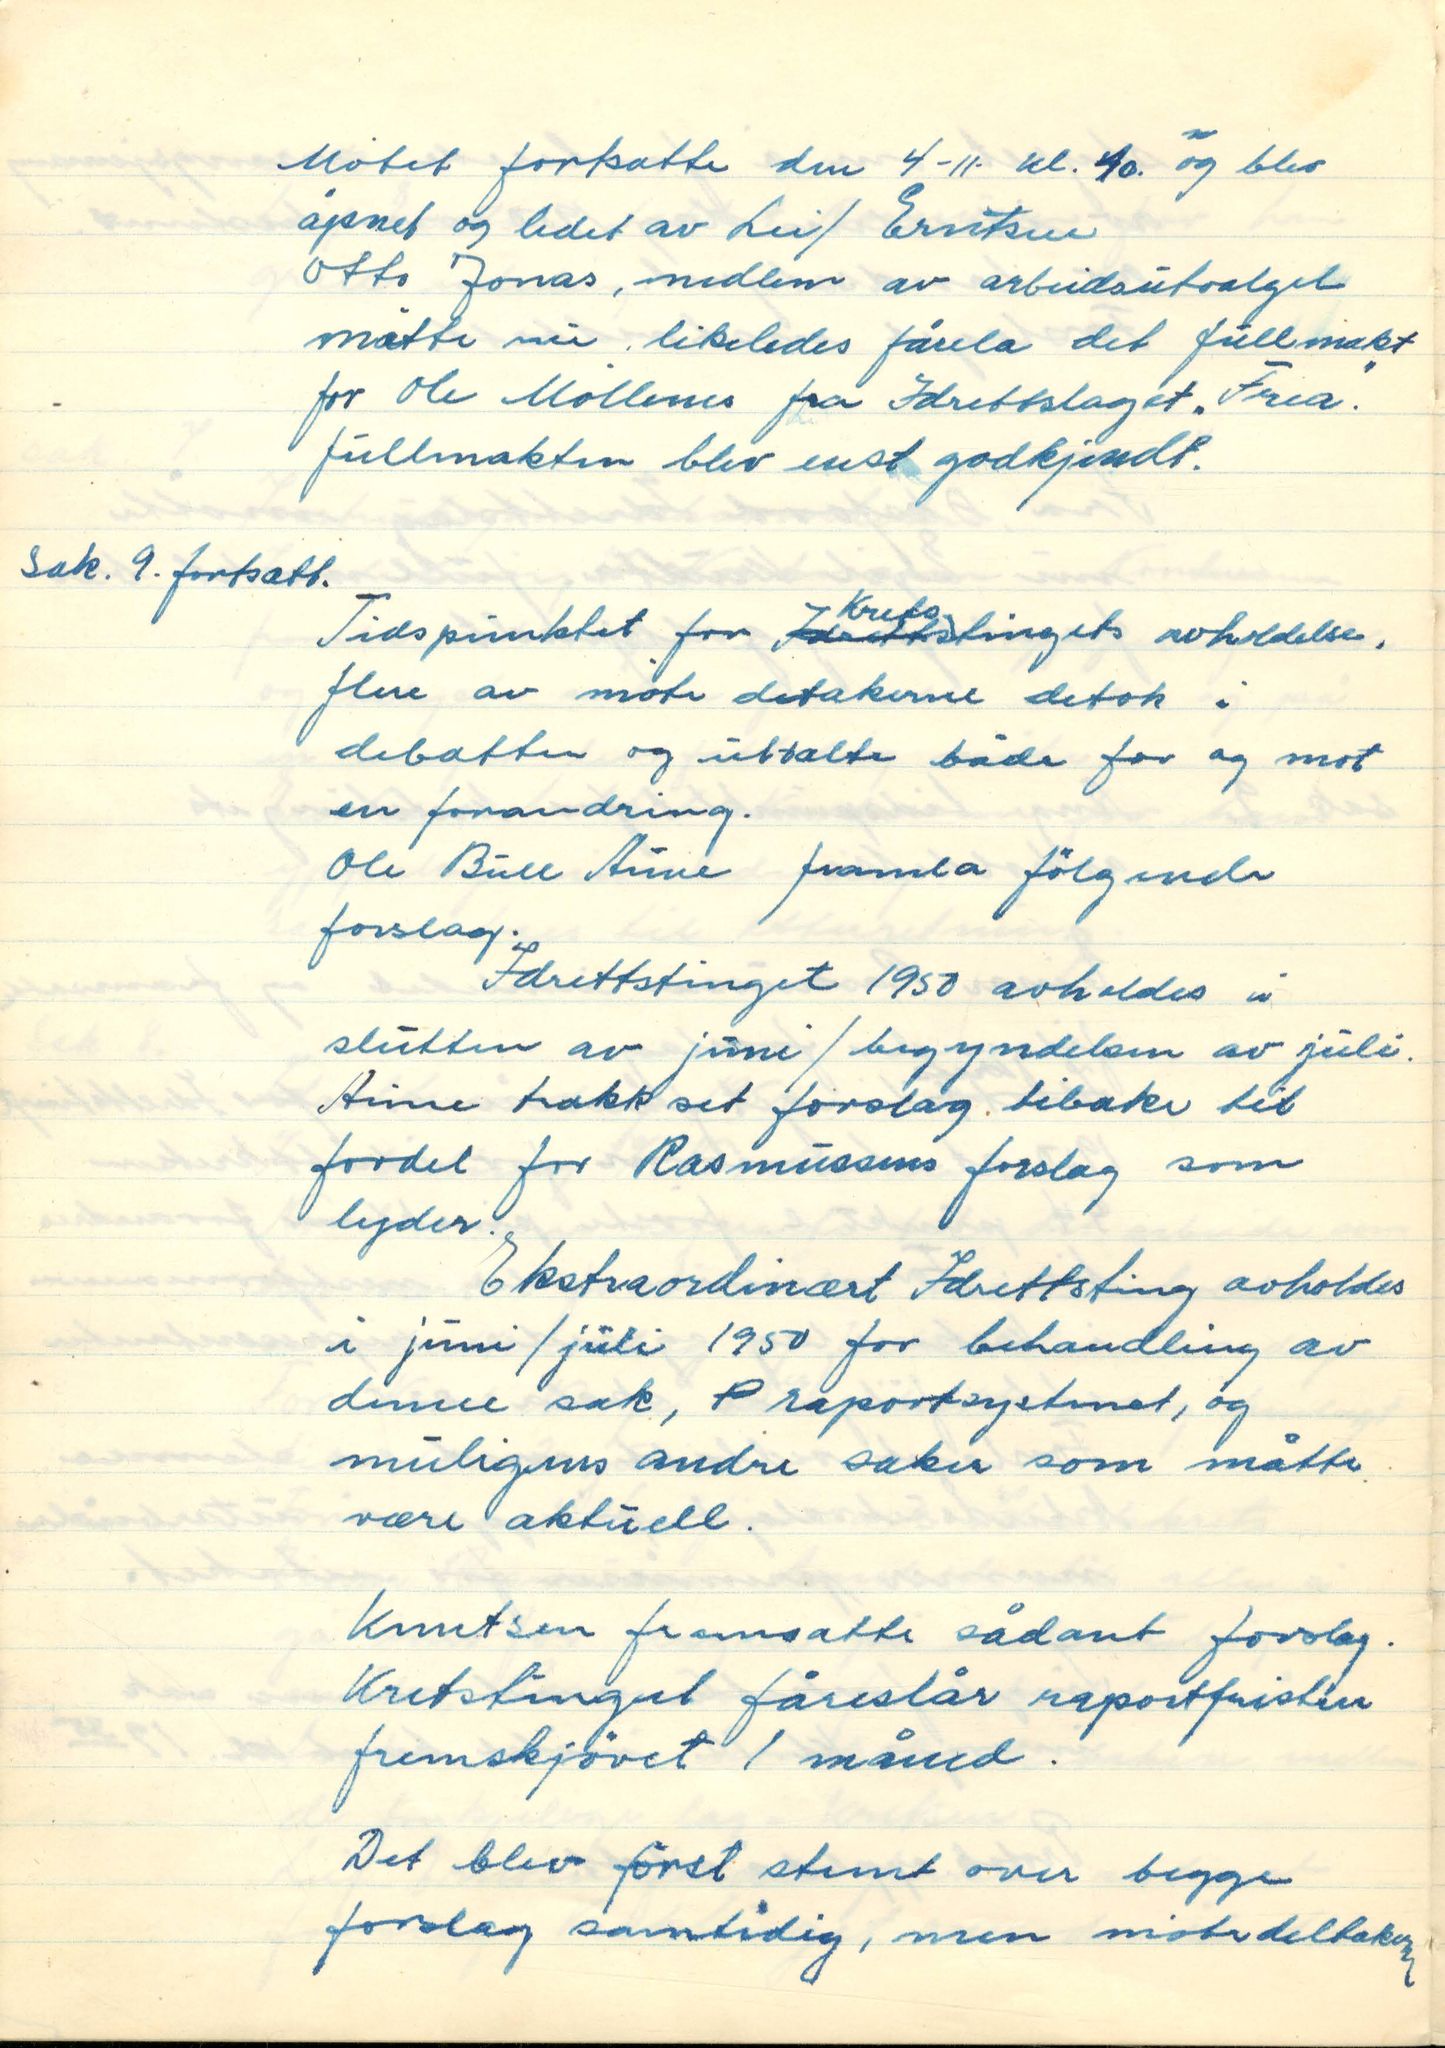 Møtet fortsatte den 4-11. kl. 10. og blev
åpnet og ledet av Lei/ Erntsen
Otto Jonas, medlem av arbeidsutvalget
måtte nu likeledes fårela det fullmakt
for Ole Möllenes fra Idrettslaget „Freia".
fullmakten blev enst godkjendt.
Sak. 9. fortsatt.
Tidspunktet for Kretstingets avholdelse.
flere av möte detakerne detok i
debatten og uttalte både for og mot
en forandring.
Ole Bull Aune framla fölgende
forslag.
Idrettstinget 1950 avholdes i
slutten av juni / begyndelsen av juli.
Aune trakk set forslag tibake til
fordel for Rasmussens forslag som
lyder.
Ekstraordinært Idrettsting avholdes
i juni / juli 1950 for behandling av
denne sak, raportsystemet, og
muligens andre saker som måtte
være aktuell.
Knutsen fremsatte sådant forslag.
Kretstinget föreslår raportfristen
fremskjövet 1 måned.
Det blev först stemt over begge
forslag samtidig, men mötedeltakern